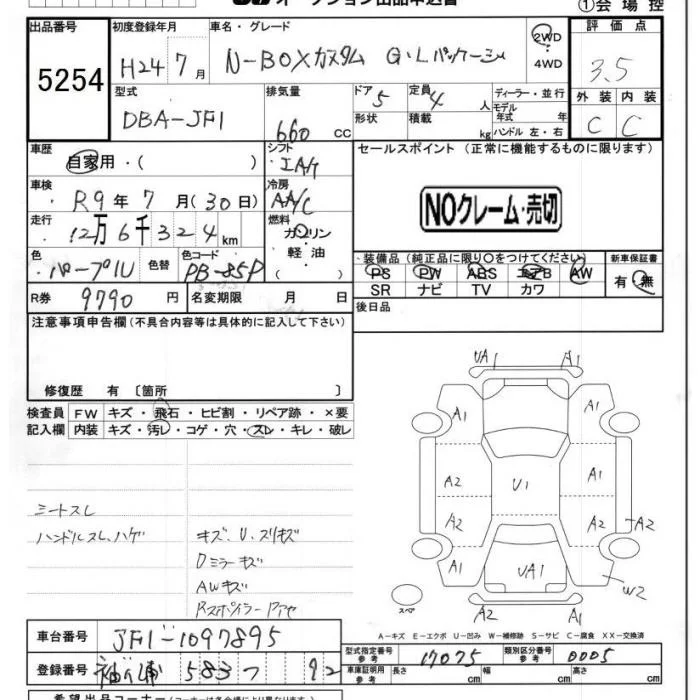 オークション出品申込書
①会場控
出品番号
5254
初度登録年月
H24年7月
車名・グレード
N-BOXカスタム G・Lパッケージ
2WD
・
4WD
評価点
3.5
外装 内装
C C
型式
DBA-JF1
排気量
660cc
ドア 5
形状
定員 4人
積載 kg
ディーラー・並行
モデル年式 年
ハンドル 左・右
車歴
自家用・( )
シフト
IAT
車検
R9年7月(30日)
冷房
AA/C
走行
12万6千324km
燃料
ガソリン
・
軽油
( )
色
パープルU
色替
色コード
PB-85P
R券
9790円
名変期限 月 日
セールスポイント(正常に機能するものに限ります)
NOクレーム・売切
装備品(純正品に限り○をつけてください)
PS PW ABS エアB AW
SR ナビ TV カワ
新車保証書
有・無
後日品
注意事項申告欄(不具合内容等は具体的に記入して下さい)
修復歴 有〔箇所 〕
検査員記入欄
FW キズ・飛石・ヒビ割・リペア跡・×要
内装 キズ・汚レ・コゲ・穴・スレ・キレ・破レ
シートスレ
ハンドルスレ、ハゲ
キズ、U、スリキズ
Dミラーキズ
AWキズ
UA1 A1
A1 A1
A2 U1 A1
A2 A2 A2
A1 UA1 A1
W2
スペア
A2 A1
A-キズ E-エクボ U-凹み W-補修跡 S-サビ C-腐食 XX-交換済
車台番号
JF1-1097895
登録番号
袖ヶ浦 583 つ 92
型式指定番号 参考
17075
類別区分番号 参考
0005
車庫証明用 参考
長さ cm 幅 cm 高さ cm
希望出品コーナー(コーナーは各会場により異なります)